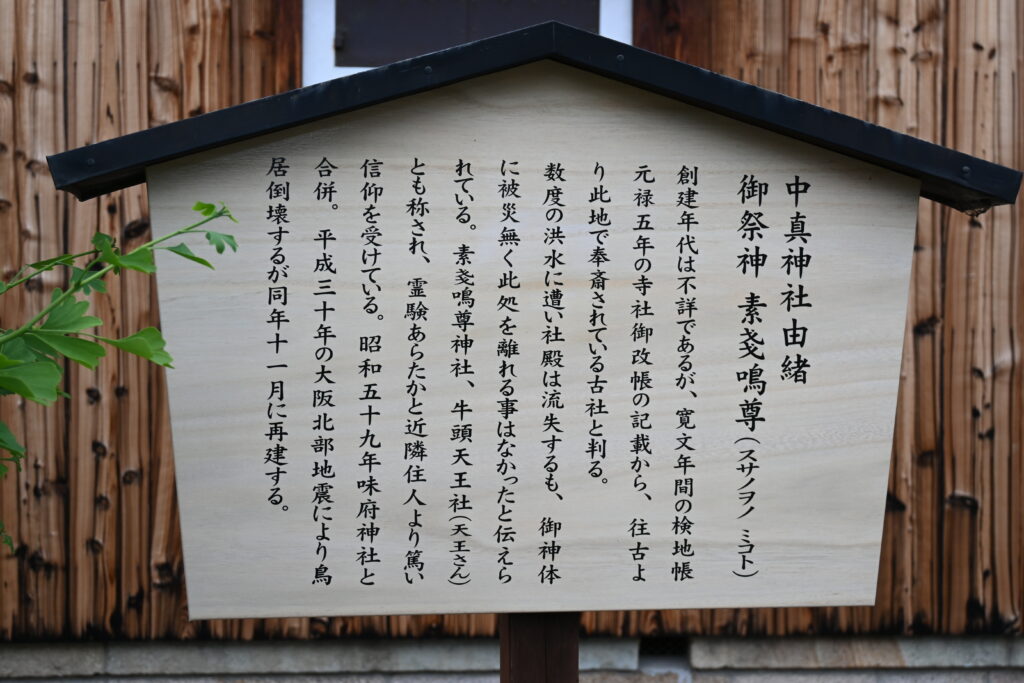 中真神社由緒
御祭神 素戔鳴尊(スサノヲノ ミコト)
創建年代は不詳であるが、寛文年間の検地帳
元禄五年の寺社御改帳の記載から、往古よ
り此地で奉斎されている古社と判る。
数度の洪水に遭い社殿は流失するも、御神体
に被災無く此処を離れる事はなかったと伝えら
れている。素戔鳴尊神社、牛頭天王社(天王さん)
とも称され、霊験あらたかと近隣住人より篤い
信仰を受けている。昭和五十九年味府神社と
合併。平成三十年の大阪北部地震により鳥
居倒壊するが同年十一月に再建する。